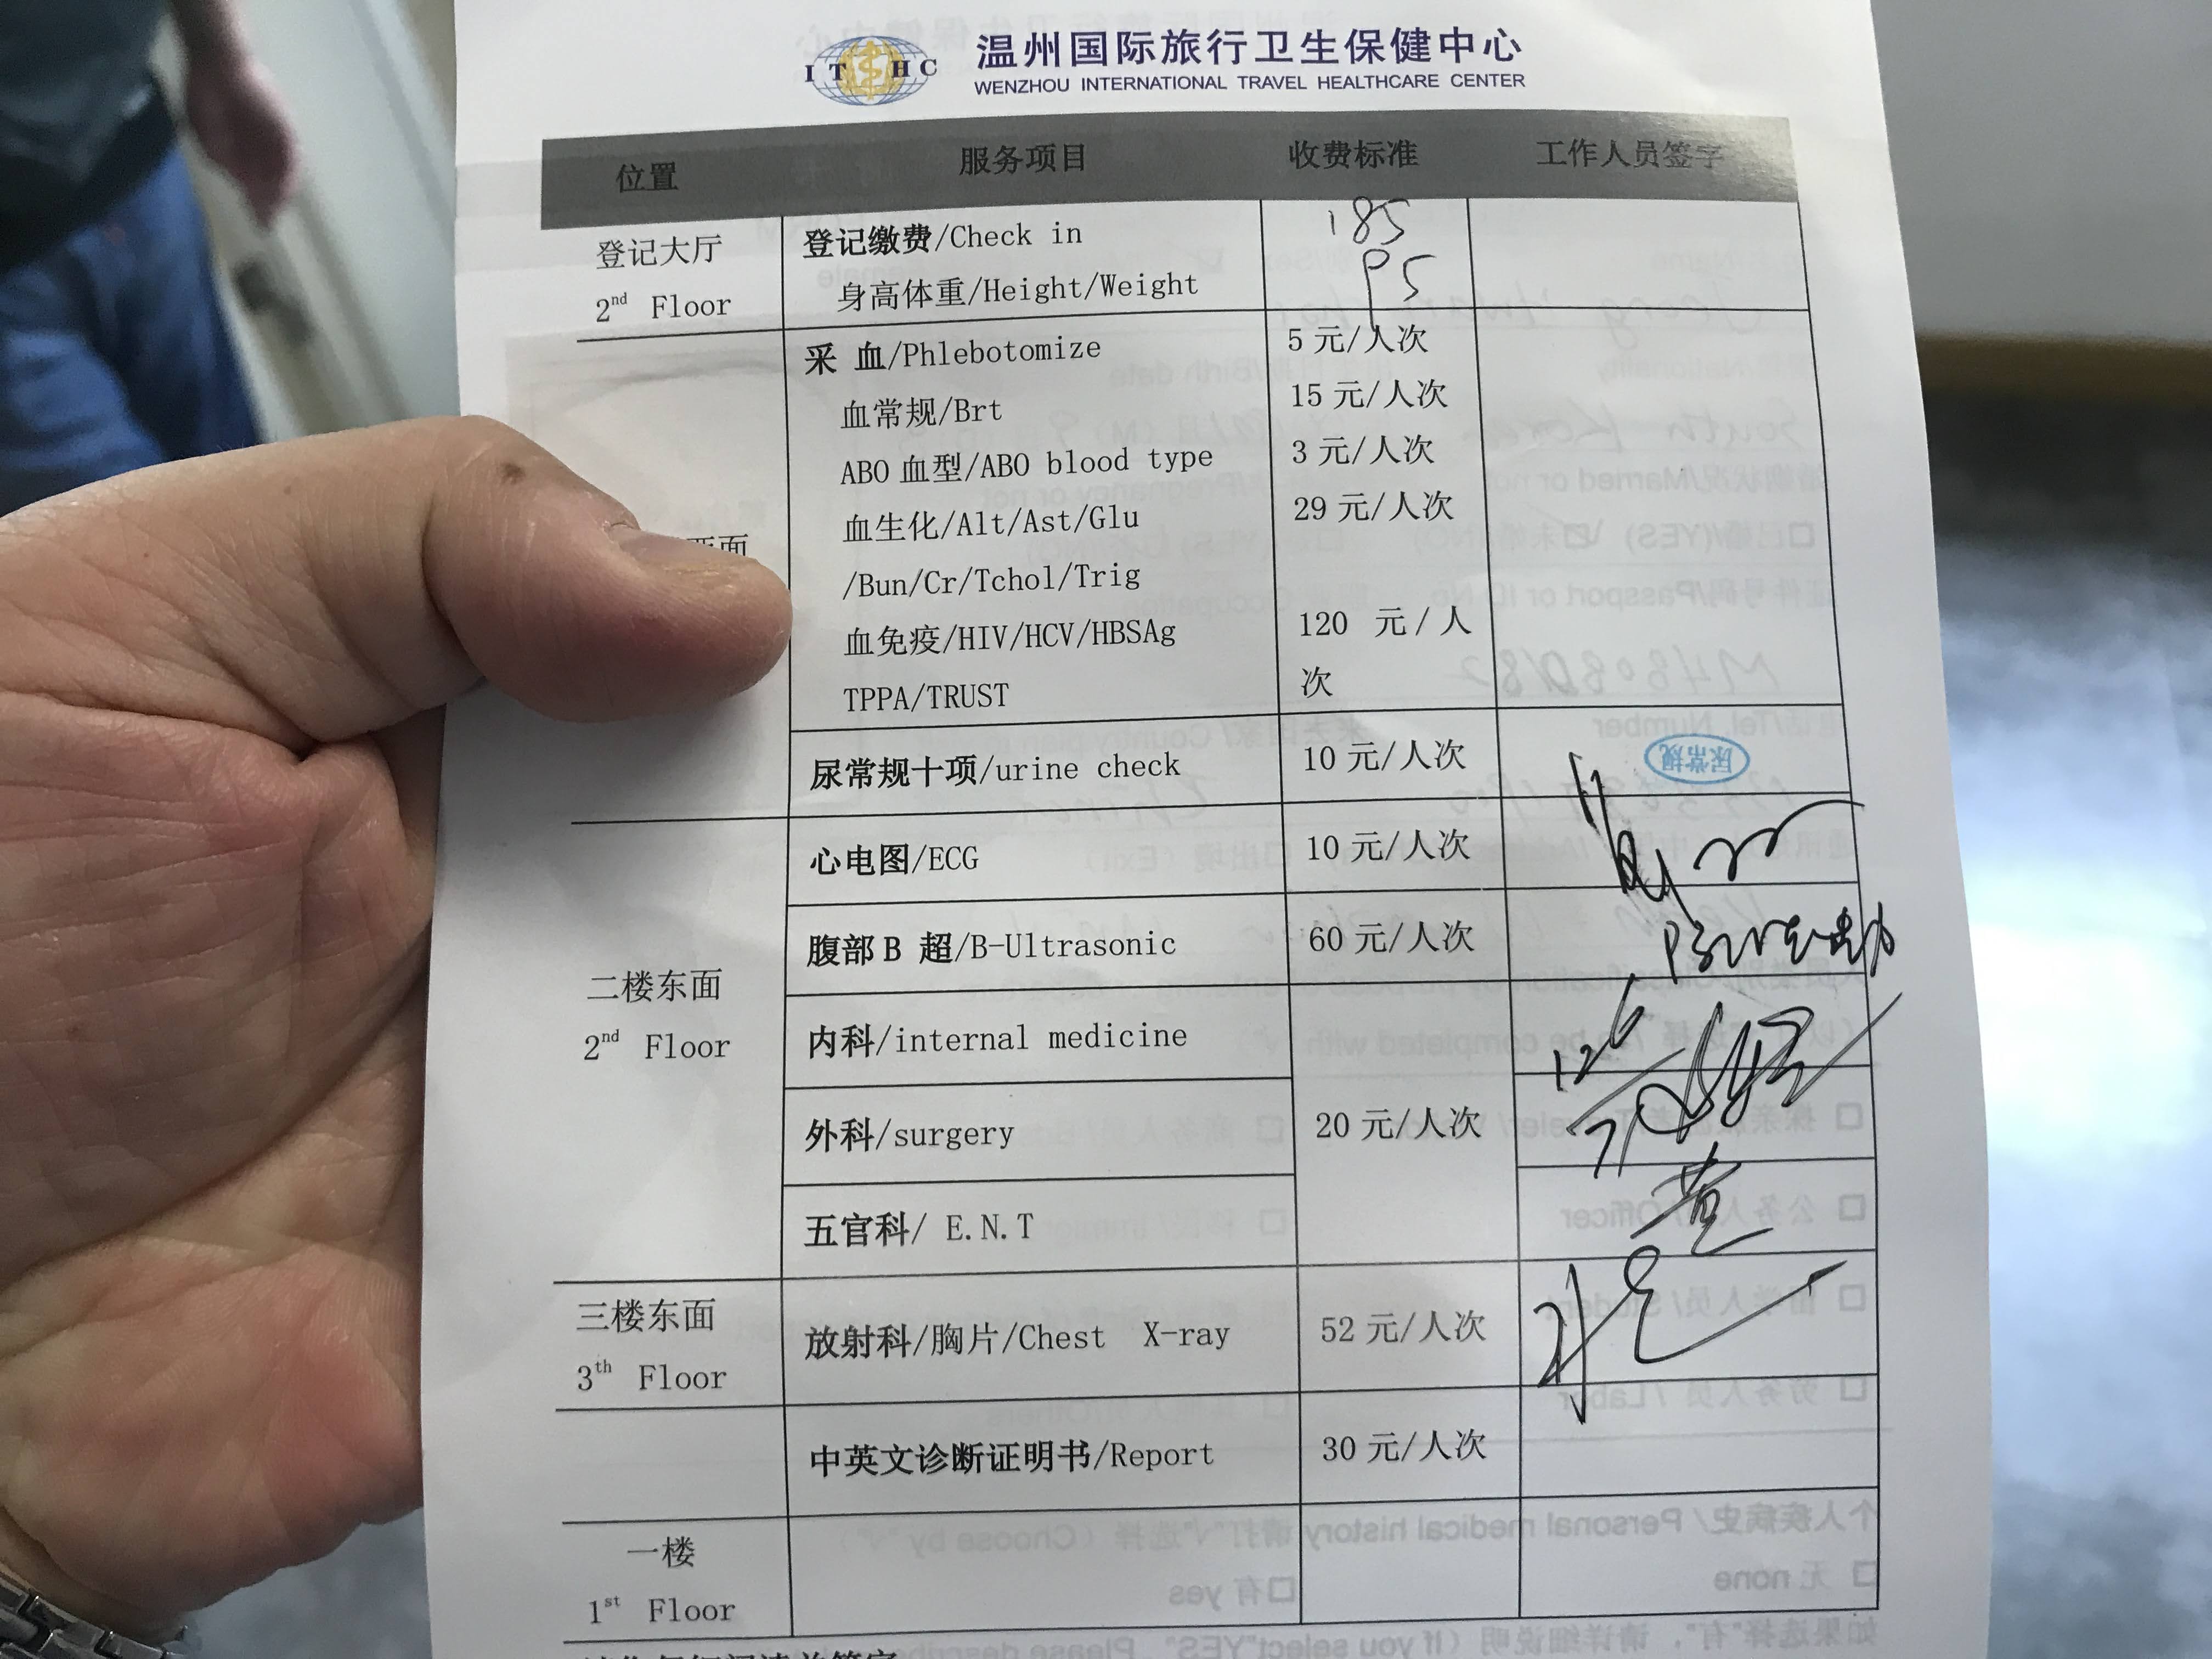 I T H C 温州国际旅行卫生保健中心
WENZHOU INTERNATIONAL TRAVEL HEALTHCARE CENTER
位置 服务项目 收费标准 工作人员签字
登记大厅
2nd Floor
登记缴费/Check in 185
身高体重/Height/Weight
采 血/Phlebotomize 5 元/人次
血常规/Brt 15 元/人次
ABO 血型/ABO blood type 3 元/人次
血生化/Alt/Ast/Glu 29 元/人次
/Bun/Cr/Tchol/Trig
血免疫/HIV/HCV/HBSAg 120 元/人
TPPA/TRUST 次
尿常规十项/urine check 10 元/人次 尿常规
二楼东面
2nd Floor
心电图/ECG 10 元/人次
腹部B 超/B-Ultrasonic 60 元/人次
内科/internal medicine
外科/surgery 20 元/人次
五官科/ E.N.T 黄
三楼东面
3th Floor
放射科/胸片/Chest X-ray 52 元/人次
中英文诊断证明书/Report 30 元/人次
一楼
1st Floor